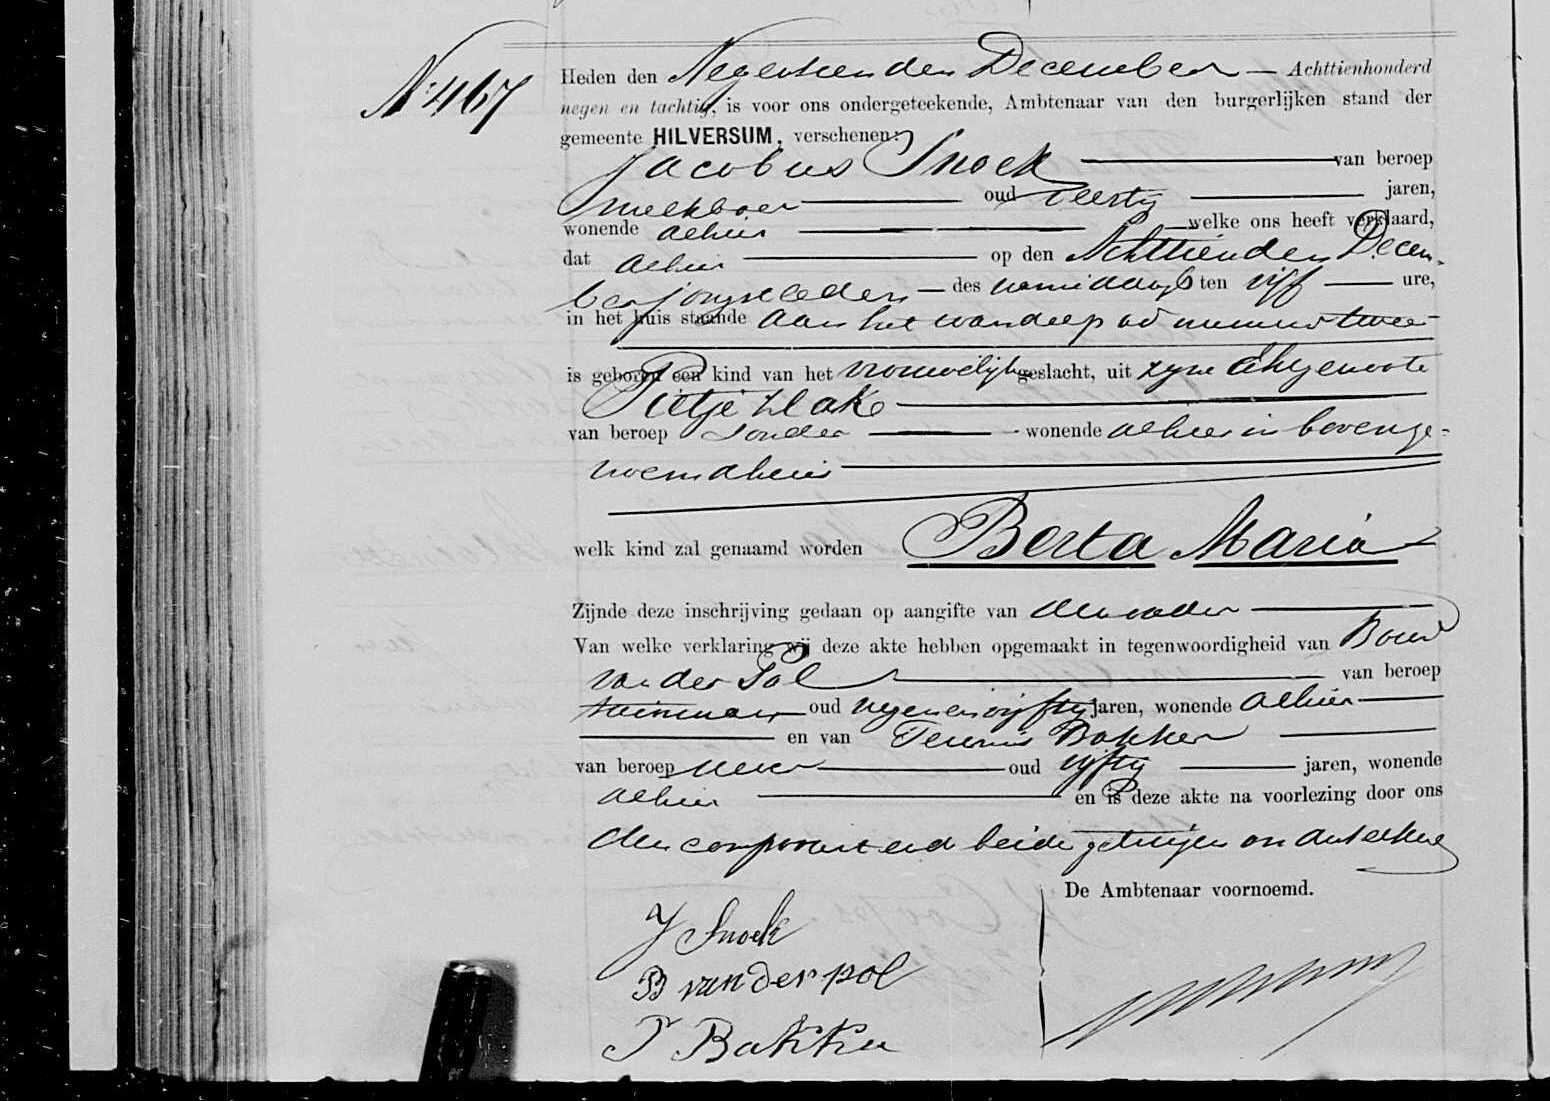 No 467
Heden den Negentienden December Achttienhonderd
negen en tachtig, is voor ons ondergeteekende, Ambtenaar van den burgerlijken stand der
gemeente HILVERSUM, verschenen:
Jacobus Snoek van beroep
melkboer oud veertig jaren,
wonende alhier welke ons heeft verklaard,
dat alhier op den Achttienden Decem-
ber jongstleden des namiddags ten vijf ure,
in het huis staande aan het nummer twee
is geboren een kind van het vrouwelijk geslacht, uit zijne Echtgenoote
Pietje Vlak
van beroep zonder wonende alhier in bovenge-
noemd huis
welk kind zal genaamd worden Berta Maria
Zijnde deze inschrijving gedaan op aangifte van den vader
Van welke verklaring wij deze akte hebben opgemaakt in tegenwoordigheid van Bouw
van der Pol van beroep
tuinman oud negenenvijftig jaren, wonende alhier
en van Teunis Bakker
van beroep oud vijftig jaren, wonende
alhier en is deze akte na voorlezing door ons
den comparant en beide getuigen onderteekend
De Ambtenaar voornoemd.
J Snoek
B van der pol
T Bakker